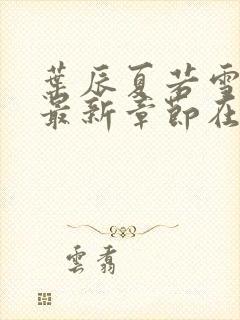 葉辰夏若雪
最新章節在
雲翥